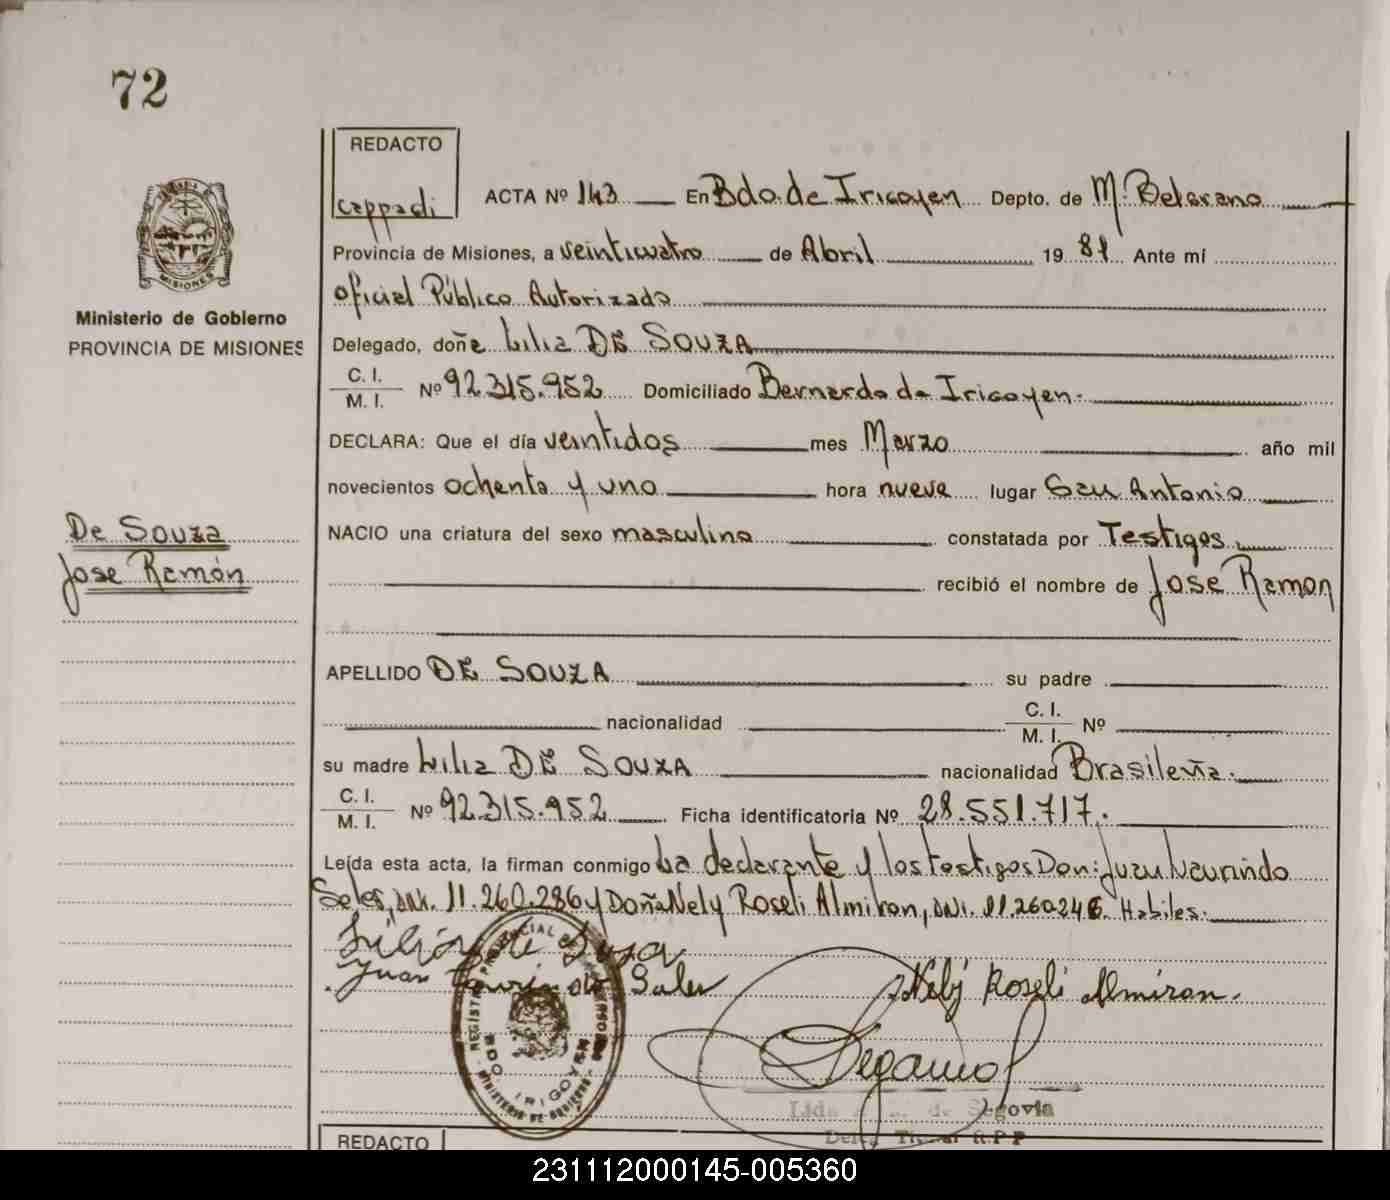 72
REDACTO
cappadi
ACTA Nº 143 En Bdo. de Irigoyen Depto. de M. Belgrano
Provincia de Misiones, a veinticuatro de Abril 19 81 Ante mí
oficial Público Autorizado
Delegado, doña Lilia DE SOUZA
C. I.
M. I. Nº 92.315.952 Domiciliado Bernardo de Irigoyen.
DECLARA: Que el día veintidos mes Marzo año mil
novecientos ochenta y uno hora nueve lugar San Antonio
NACIO una criatura del sexo masculino constatada por Testigos
recibió el nombre de Jose Ramon
APELLIDO DE SOUZA su padre
nacionalidad C. I.
M. I. Nº
su madre Lilia DE SOUZA nacionalidad Brasileña.
C. I.
M. I. Nº 92.315.952 Ficha identificatoria Nº 28.551.717.
Leída esta acta, la firman conmigo La declarante y los testigos Don: Juan Laurindo
Sales, DNI. 11.260.286 y Doña Nely Roseli Almiron, DNI. 11.260246. Habiles.
Juan Sales
Nely Roseli Almiron.
Lida de Segovia
MISIONES
Ministerio de Gobierno
PROVINCIA DE MISIONES
De Souza
Jose Ramón
REDACTO
231112000145-005360